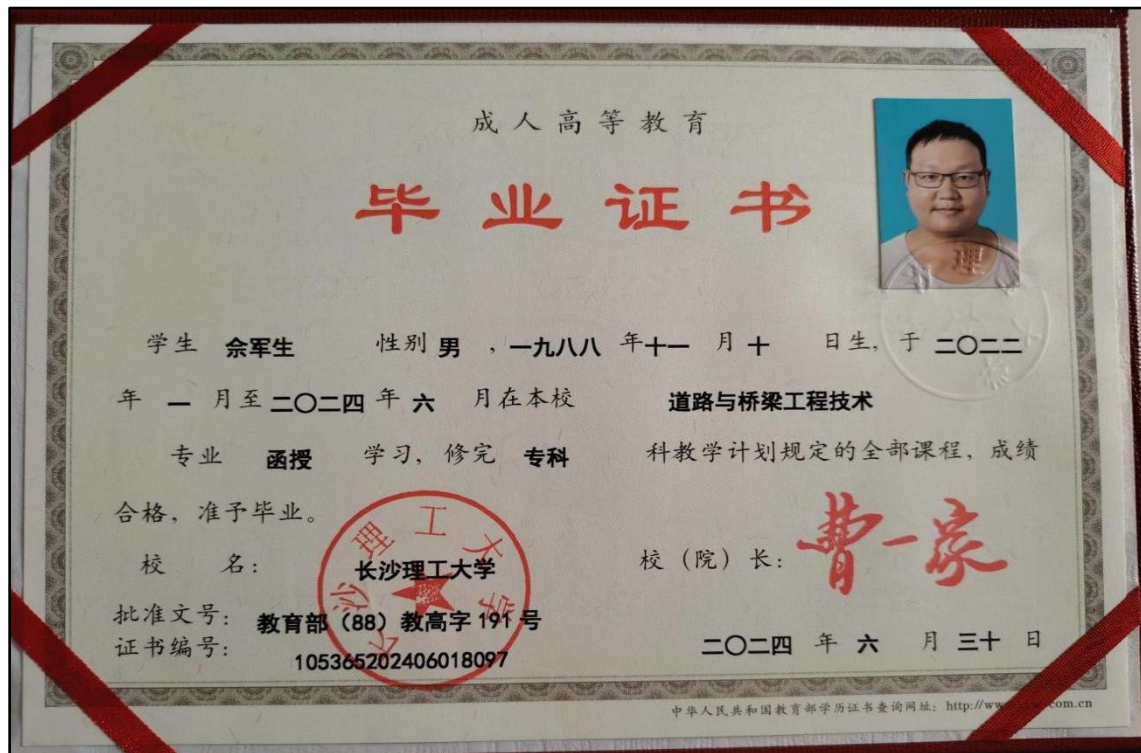 成人高等教育
毕业证书
学生 佘军生 性别 男 ，一九八八 年 十一 月 十 日生，于 二〇二二
年 一 月至 二〇二四 年 六 月在本校 道路与桥梁工程技术
专业 函授 学习，修完 专科 科教学计划规定的全部课程，成绩
合格，准予毕业。
校 名： 长沙理工大学 校（院）长： 曹一家
批准文号： 教育部（88）教高字 191 号
证书编号： 105365202406018097 二〇二四 年 六 月 三十 日
长沙理工大学
中华人民共和国教育部学历证书查询网址：http://www. com.cn